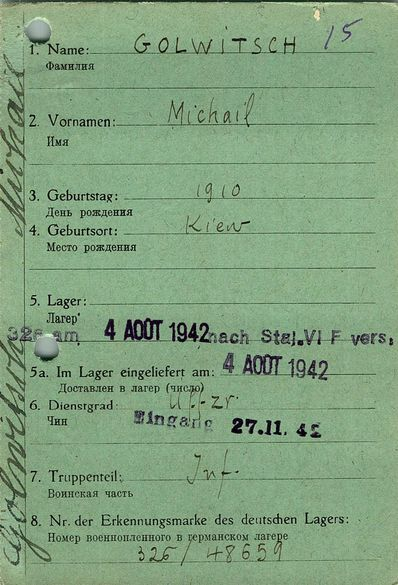 1. Name: GOLWITSCH 15
Фамилия
2. Vornamen: Michail
Имя
3. Geburtstag: 1910
День рождения
4. Geburtsort: Kiew
Место рождения
5. Lager:
Лагерь
326 am 4 AOÛT 1942 nach Stal. VI F vers.
4 AOÛT 1942
5a. Im Lager eingeliefert am:
Доставлен в лагер (число)
6. Dienstgrad:
Чин
Eingang 27.11.42
7. Truppenteil: Inf.
Воинская часть
8. Nr. der Erkennungsmarke des deutschen Lagers:
Номер военнопленного в германском лагере
326/48659
Golwitsch Michail